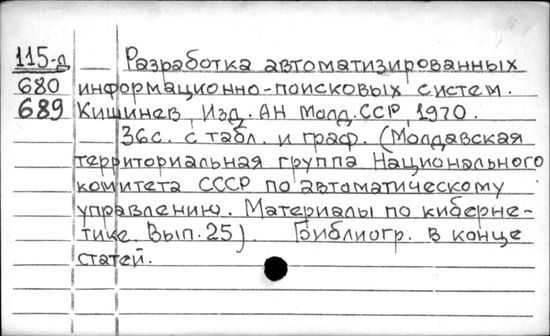 115-д Разработка автоматизированных
680 информационно-поисковых систем.
689 Кишинев, Изд. АН Молд.ССР, 1970.
36с. с табл. и граф. (Молдавская
территориальная группа Национального
комитета СССР по автоматическому
управлению. Материалы по киберне-
тике. Вып.25). Библиогр. в конце
статей.